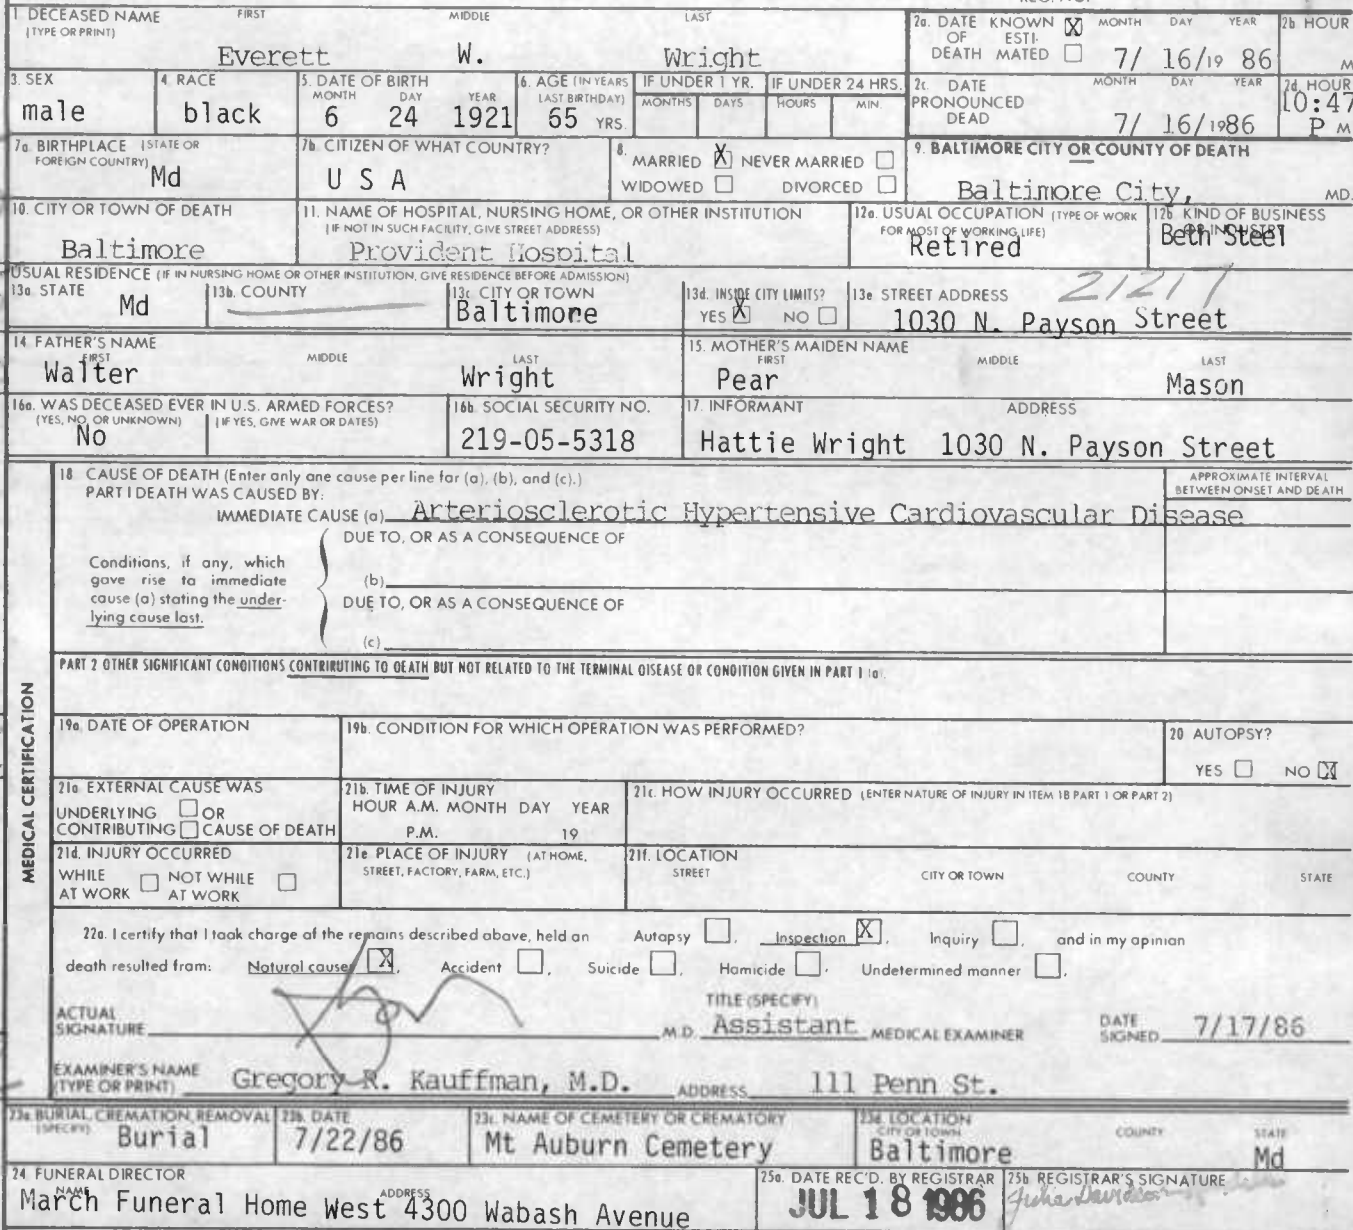 1 DECEASED NAME FIRST MIDDLE LAST
(TYPE OR PRINT)
Everett W. Wright
2a. DATE KNOWN X MONTH DAY YEAR 2b HOUR
OF ESTI-
DEATH MATED 7/ 16/19 86 M
3. SEX 4. RACE 5. DATE OF BIRTH 6. AGE (IN YEARS IF UNDER 1 YR. IF UNDER 24 HRS.
MONTH DAY YEAR LAST BIRTHDAY) MONTHS DAYS HOURS MIN.
male black 6 24 1921 65 YRS.
2c. DATE MONTH DAY YEAR 2d. HOUR
PRONOUNCED 10:47
DEAD 7/ 16/1986 P M
7a. BIRTHPLACE (STATE OR
FOREIGN COUNTRY)
Md
7b. CITIZEN OF WHAT COUNTRY?
U S A
8. MARRIED X NEVER MARRIED
WIDOWED DIVORCED
9. BALTIMORE CITY OR COUNTY OF DEATH
Baltimore City, MD.
10. CITY OR TOWN OF DEATH
Baltimore
11. NAME OF HOSPITAL, NURSING HOME, OR OTHER INSTITUTION
(IF NOT IN SUCH FACILITY, GIVE STREET ADDRESS)
Provident Hospital
12a. USUAL OCCUPATION (TYPE OF WORK
FOR MOST OF WORKING LIFE)
Retired
12b. KIND OF BUSINESS
OR INDUSTRY
Beth Steel
USUAL RESIDENCE (IF IN NURSING HOME OR OTHER INSTITUTION, GIVE RESIDENCE BEFORE ADMISSION)
13a. STATE 13b. COUNTY 13c. CITY OR TOWN 13d. INSIDE CITY LIMITS? 13e STREET ADDRESS 21217
Md Baltimore YES X NO 1030 N. Payson Street
14. FATHER'S NAME
FIRST MIDDLE LAST
Walter Wright
15. MOTHER'S MAIDEN NAME
FIRST MIDDLE LAST
Pear Mason
16a. WAS DECEASED EVER IN U.S. ARMED FORCES?
(YES, NO, OR UNKNOWN) (IF YES, GIVE WAR OR DATES)
No
16b. SOCIAL SECURITY NO.
219-05-5318
17. INFORMANT ADDRESS
Hattie Wright 1030 N. Payson Street
MEDICAL CERTIFICATION
18 CAUSE OF DEATH (Enter only one cause per line for (a), (b), and (c).)
PART I DEATH WAS CAUSED BY:
APPROXIMATE INTERVAL
BETWEEN ONSET AND DEATH
IMMEDIATE CAUSE (a) Arteriosclerotic Hypertensive Cardiovascular Disease
DUE TO, OR AS A CONSEQUENCE OF
Conditions, if any, which
gave rise to immediate
cause (a) stating the under-
lying cause last.
(b)
DUE TO, OR AS A CONSEQUENCE OF
(c)
PART 2 OTHER SIGNIFICANT CONDITIONS CONTRIBUTING TO DEATH BUT NOT RELATED TO THE TERMINAL DISEASE OR CONDITION GIVEN IN PART 1 (a).
19a. DATE OF OPERATION 19b. CONDITION FOR WHICH OPERATION WAS PERFORMED? 20 AUTOPSY?
YES NO X
21a. EXTERNAL CAUSE WAS
UNDERLYING OR
CONTRIBUTING CAUSE OF DEATH
21b. TIME OF INJURY
HOUR A.M. MONTH DAY YEAR
P.M. 19
21c. HOW INJURY OCCURRED (ENTER NATURE OF INJURY IN ITEM 18 PART 1 OR PART 2)
21d. INJURY OCCURRED
WHILE NOT WHILE
AT WORK AT WORK
21e PLACE OF INJURY (AT HOME,
STREET, FACTORY, FARM, ETC.)
21f. LOCATION
STREET CITY OR TOWN COUNTY STATE
22a. I certify that I took charge of the remains described above, held an Autopsy , Inspection X , Inquiry , and in my opinion
death resulted from: Natural cause X , Accident , Suicide , Homicide , Undetermined manner .
ACTUAL
SIGNATURE M.D.
TITLE (SPECIFY)
Assistant MEDICAL EXAMINER
DATE
SIGNED 7/17/86
EXAMINER'S NAME
(TYPE OR PRINT) Gregory R. Kauffman, M.D. ADDRESS 111 Penn St.
23a. BURIAL, CREMATION, REMOVAL 23b. DATE 23c. NAME OF CEMETERY OR CREMATORY 23d. LOCATION
(SPECIFY) CITY OR TOWN COUNTY STATE
Burial 7/22/86 Mt Auburn Cemetery Baltimore Md
24 FUNERAL DIRECTOR
NAME ADDRESS
March Funeral Home West 4300 Wabash Avenue
25a. DATE REC'D. BY REGISTRAR
JUL 18 1986
25b. REGISTRAR'S SIGNATURE
Julia Davidson